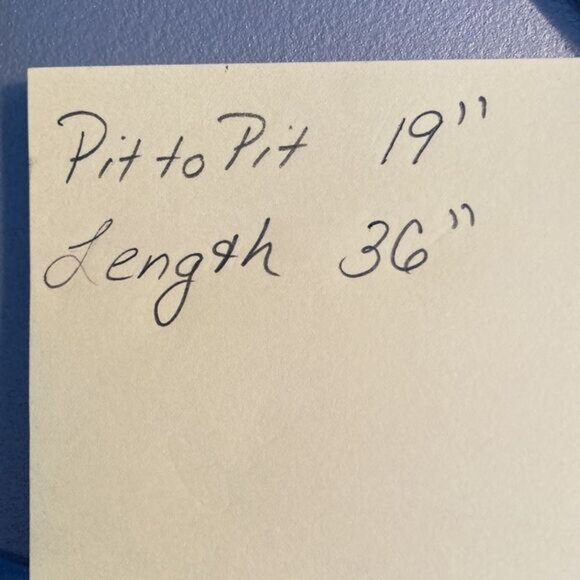 Pit to Pit 19"
Length 36"